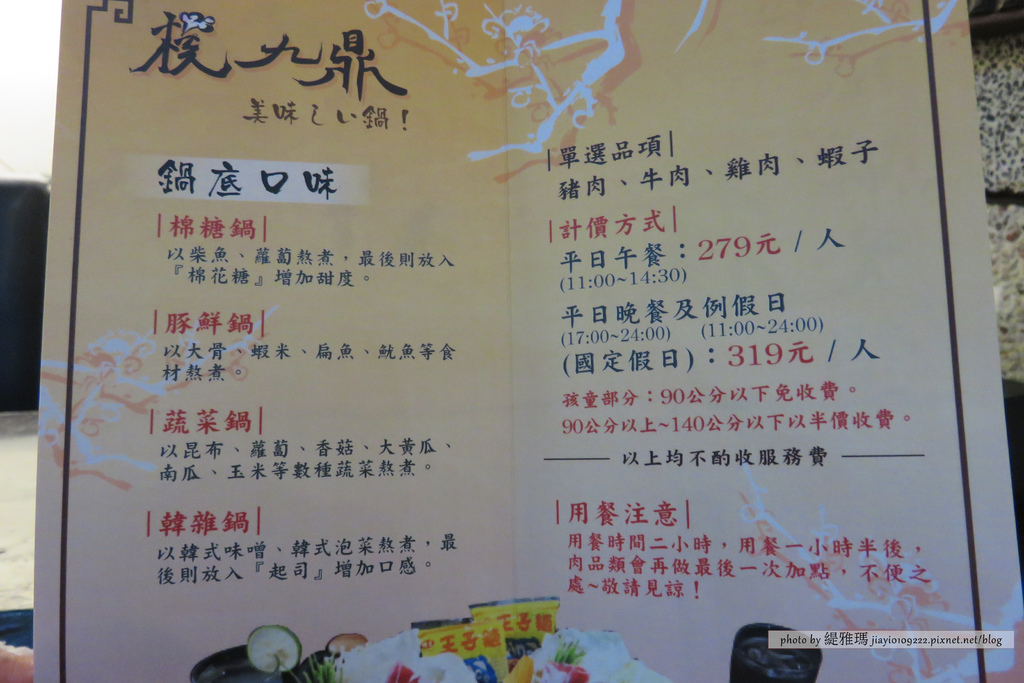 樸九鼎
美味しい鍋!
鍋底口味
|棉糖鍋|
以柴魚、蘿蔔熬煮,最後則放入
『棉花糖』增加甜度。
|豚鮮鍋|
以大骨、蝦米、扁魚、魷魚等食
材熬煮。
|蔬菜鍋|
以昆布、蘿蔔、香菇、大黃瓜、
南瓜、玉米等數種蔬菜熬煮。
|韓雜鍋|
以韓式味噌、韓式泡菜熬煮,最
後則放入『起司』增加口感。
|單選品項|
豬肉、牛肉、雞肉、蝦子
|計價方式|
平日午餐:279元 / 人
(11:00~14:30)
平日晚餐及例假日
(17:00~24:00) (11:00~24:00)
(國定假日):319元 / 人
孩童部分:90公分以下免收費。
90公分以上~140公分以下以半價收費。
以上均不酌收服務費
|用餐注意|
用餐時間二小時,用餐一小時半後,
肉品類會再做最後一次加點,不便之
處~敬請見諒!
王子麵
王子麵
photo by 緹雅瑪 jiayio109222.pixnet.net/blog